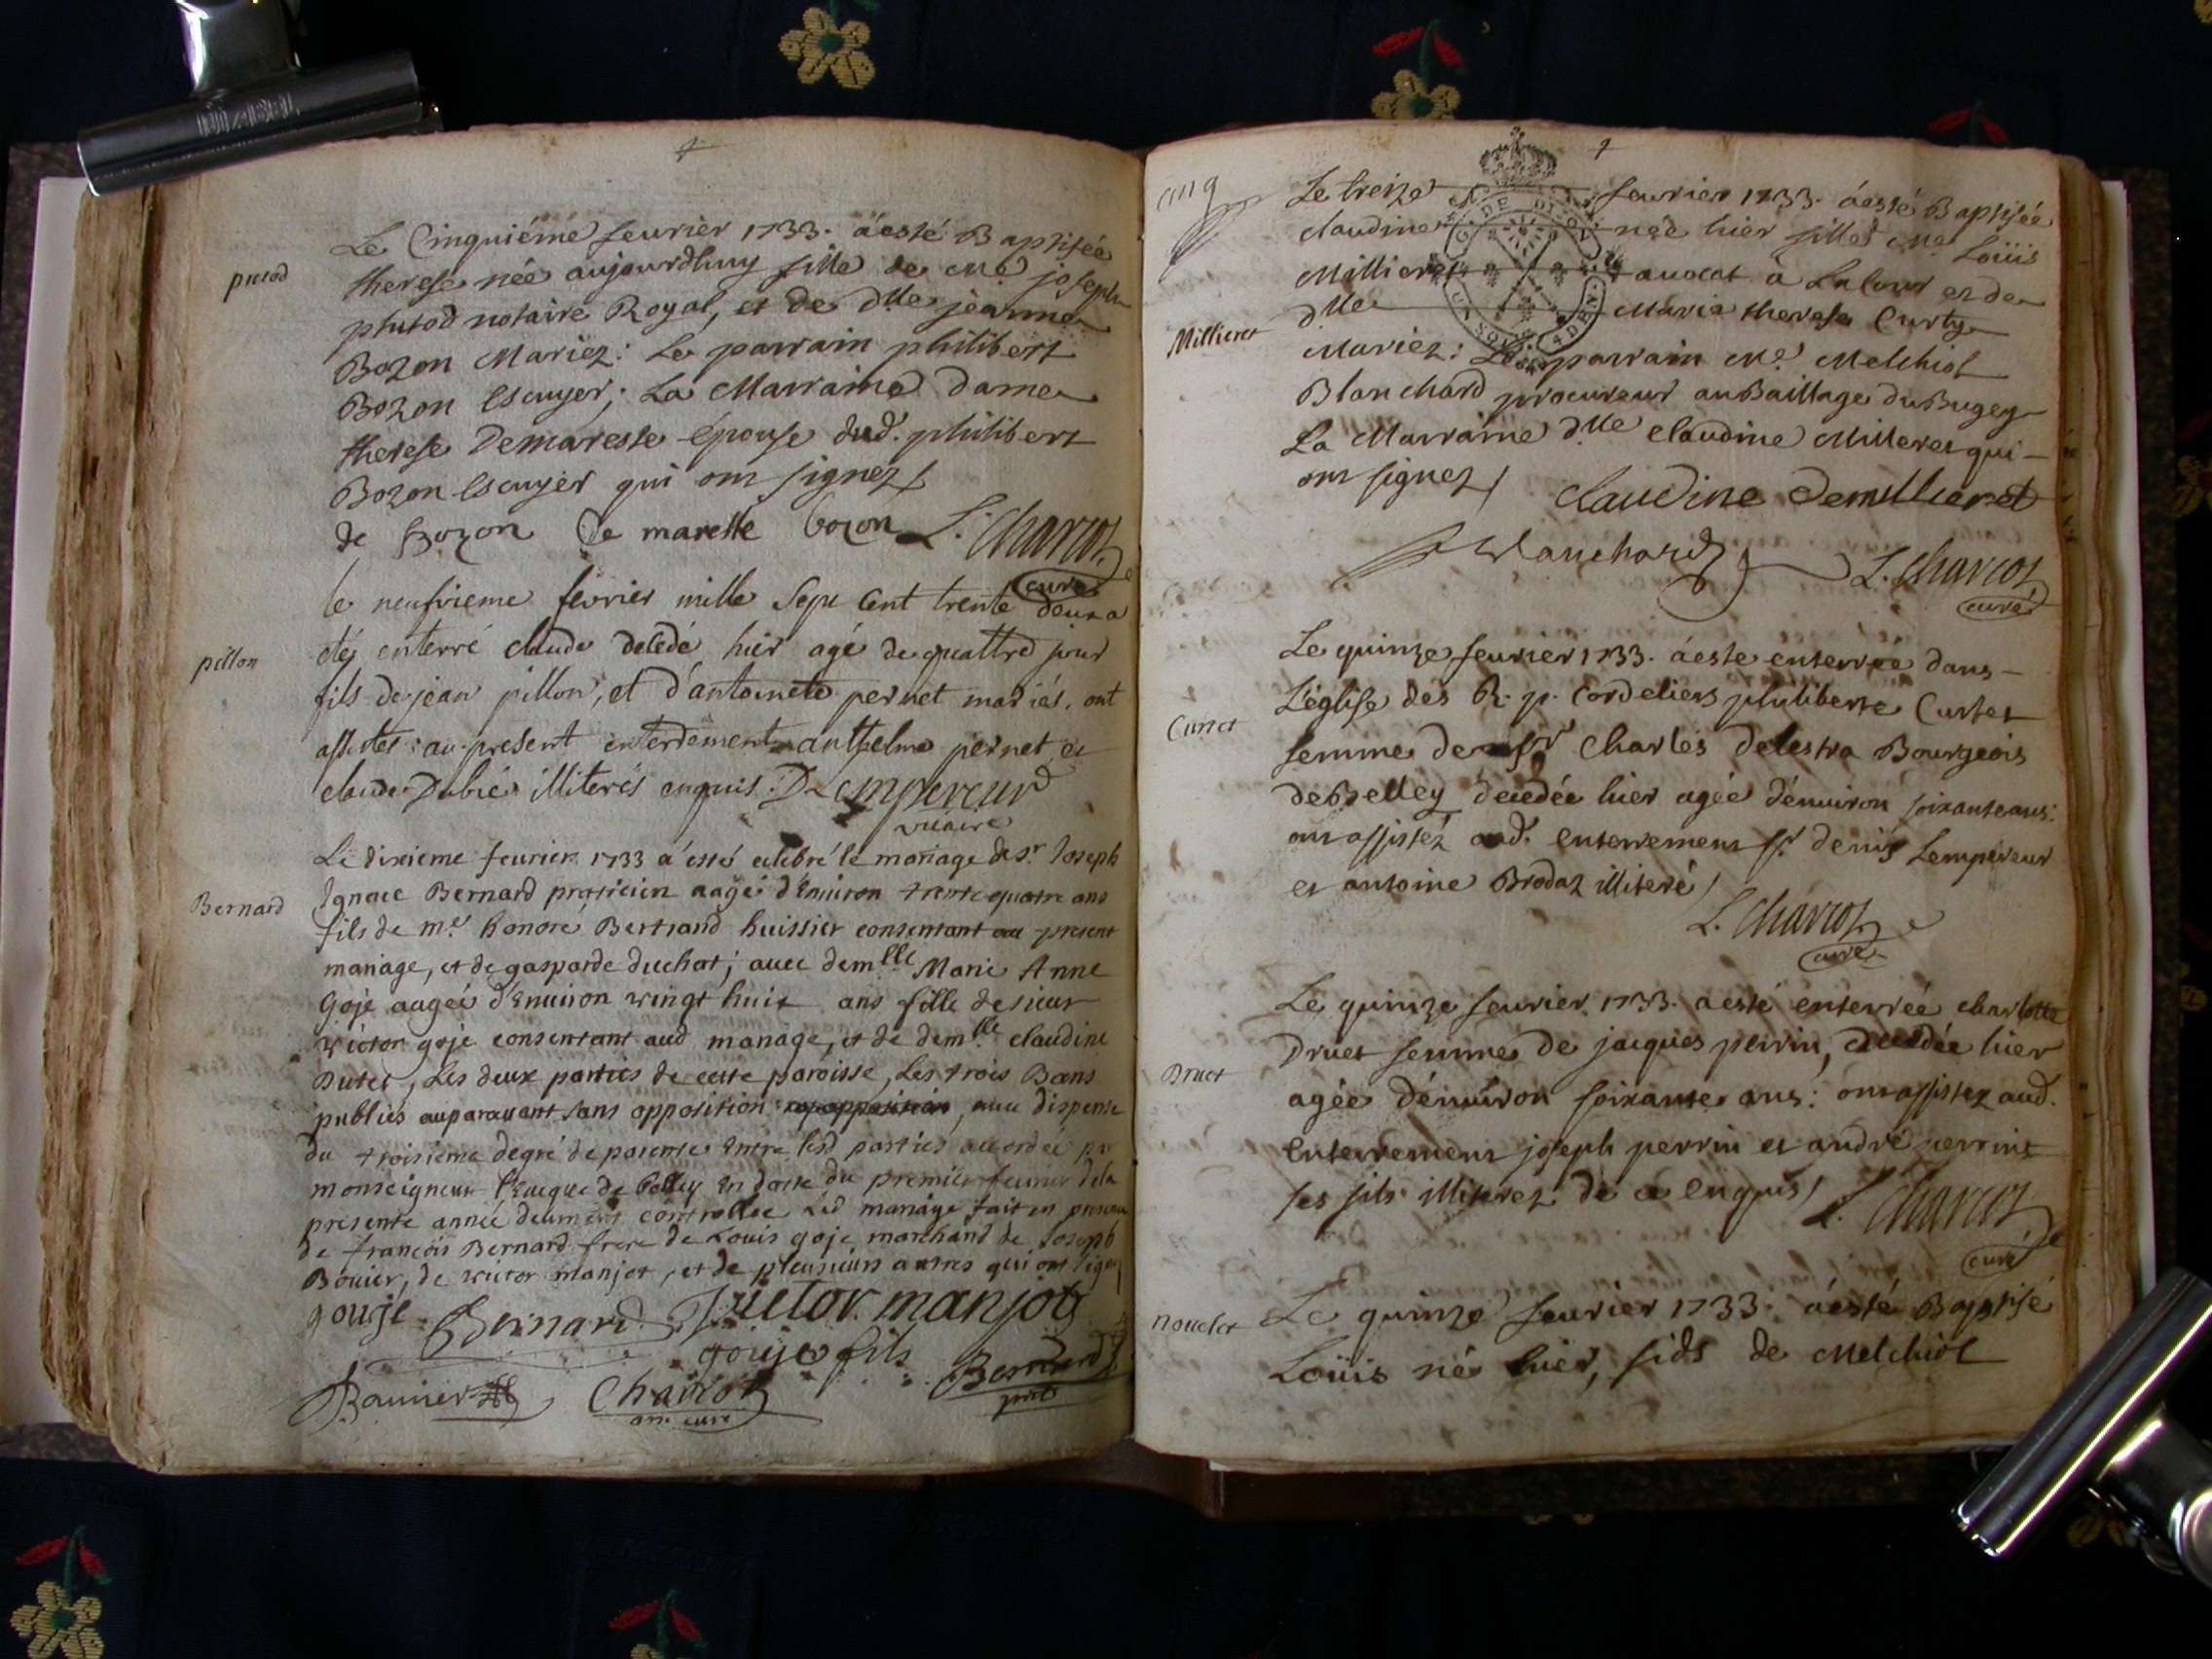 Le Cinquiéme feurier 1733. a esté Baptisée
putod
therese née aujourdhuy fille de Me joseph
putod notaire Royal, et de dlle jeanne
Bozon Mariez: Le parrain philibert
Bozon Escuyer; La Marraine dame
therese Demareste épouse dud. philibert
Bozon Escuyer qui ont signez/
de Bozon De mareste bozon L. Charcot
curé
le neufvieme fevrier mille Sept Cent trente deux a
pillon
eté enterré claude decedé hier agé de quattre jour
fils de jean pillon, et d'antoinete pernet mariés, ont
assistes au present enterrement anthelme pernet et
claude Dubié illiterés enquis. D. Lempereur
vicaire
Le dixieme feurier 1733 a esté celebré le mariage de sr. Joseph
Bernard
Ignace Bernard praticien aagé d'Enuiron trente quatre ans
fils de me. honoré Bertrand huissier consentant au present
mariage, et de gasparde duchat; auec demlle Marie Anne
Goje aagée d'Enuiron vingt huit ans fille de sieur
victor goje consentant aud mariage, et de demlle claudine
Dutet, Les deux parties de cette paroisse, Les trois Bans
publiés auparauant sans opposition, auec dispense
du troisième degré de parenté Entre lesd parties accordée par
monseigneur l'Eueque de Belley En datte du premier feurier dela
presente année deument controllée Led mariage fait en presence
de francois Bernard frere de Louis goje marchand de Joseph
Bouier, de victor manjot, et de pleusieurs autres qui ont signé
gouje Bernard Victor manjot
gouje fils
Bernard
Bauuier Charcot
curé
cinq
Le treize feurier 1733. a esté Baptisée
claudine née hier fille de Me. Loüis
Millieret auocat à La Cour et de
dlle Marie therese Curty
Millieret
Mariez: Le parrain Me. Melchiol
Blanchard procureur au Baillage du Bugey
La Marraine dlle claudine Milleret qui
ont signez/ claudine demillieret
Blanchard L. Charcot
curé
Le quinze feurier 1733. a este enterrée dans
L'église des R. p. Cordeliers philiberte Curtet
Curtet
femme de sr Charles delestra Bourgeois
de Belley decedée hier agée d'enuiron soixante ans:
ont assistez aud. enterrement sr. denis Lempereur
et antoine Brodaz illiteré/
L. Charcot
curé
Le quinze feurier 1733. a esté enterrée charlotte
Druet femme de jacques perrin, decedée hier
Druet
agée d'enuiron soixante ans: ont assistez aud.
enterrement joseph perrin et andré perrin
ses fils illiterez de ce enquis/ L. Charcot
curé
Le quinze feurier 1733. a esté Baptisé
nouelet
Loüis né hier, fils de Melchiol